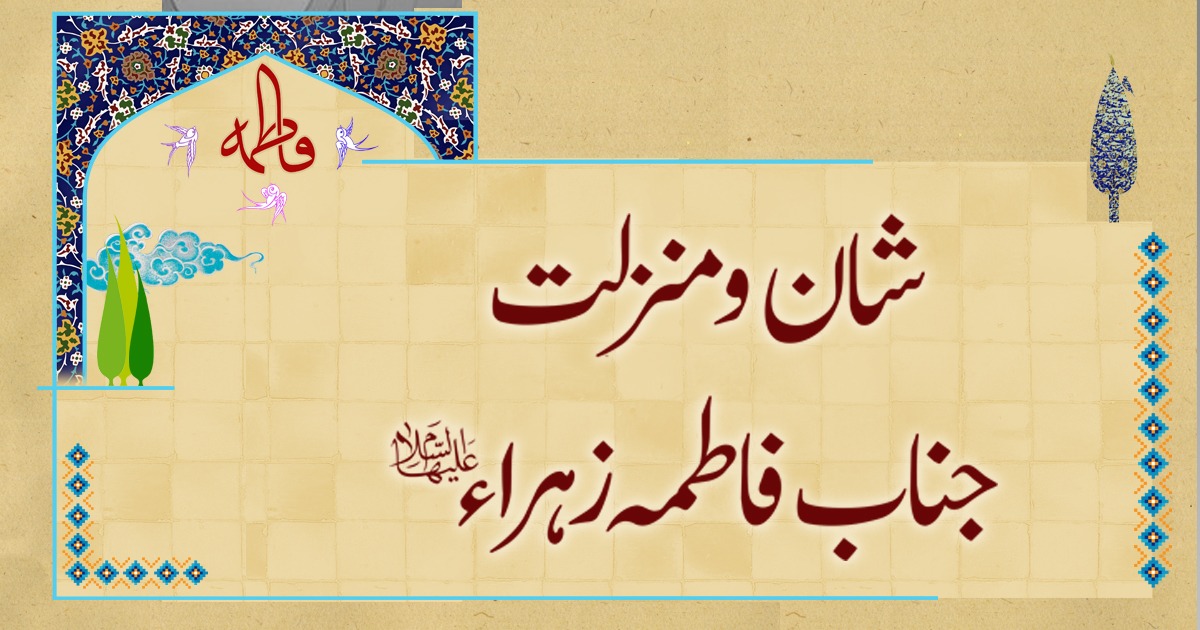 فاطمه
شان و منزلت
جناب فاطمہ زہراء علیہا السلام